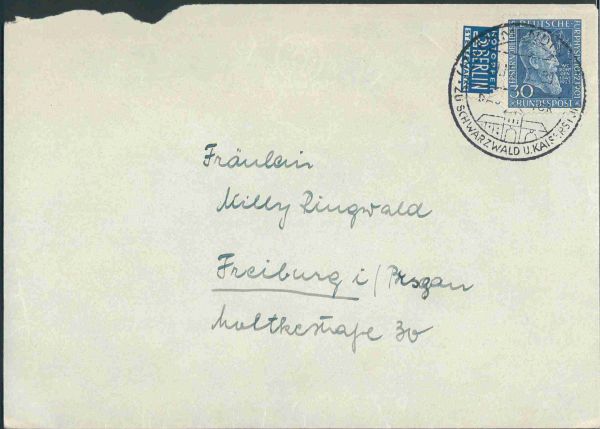 NOTOPFER
2 BERLIN
STEUERMARKE
DEUTSCHE
30
BUNDESPOST
ZU SCHWARZWALD U. KAISERSTUHL
Fräulein
Milly Ringwald
Freiburg i/Brsgau
Moltkestraße 30